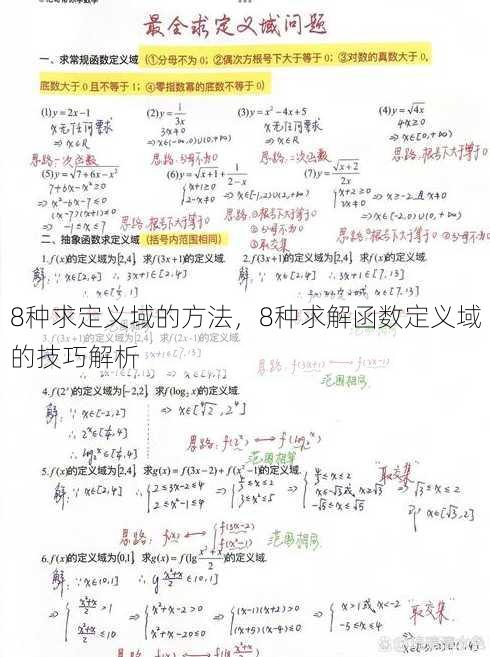 最全求定义域问题
一、求常规函数定义域 (①分母不为 0；②偶次方根号下大于等于 0；③对数的真数大于 0，
底数大于 0 且不等于 1；④零指数幂的底数不等于 0)
(1)y=2x-1 (2)y=1/3x (3)y=x²-4x+5 (4)y=√4x
x无任何要求 3x≠0 x无任何要求 4x≥0
⇒ x∈R ⇒ x∈(-∞,0)∪(0,+∞) ⇒ x∈R ⇒ x∈[0,+∞)
思路:一次函数 思路:分母不为0 思路:二次函数 思路:根号下大于等于0
(5)y=√7+6x-x² (6)y=√x+1+1/2-x (7)y=√x+2/2x
7+6x-x²≥0 {x+1≥0 ⇒ x∈[-1,2)∪(2,+∞) {x+2≥0 ⇒ x≥-2 且 x≠0
⇒ x²-6x-7≤0 2-x≠0 2x≠0 ⇒ x∈[-2,0)∪(0,+∞)
(x-7)(x+1)≤0
⇒ -1≤x≤7 思路:根号下大于等于0 思路:①根号下大于等于0 ②分母不为0 ③取交集 思路:①根号下大于等于0 ②分母不为0
二、抽象函数求定义域 (括号内范围相同)
1.f(x)的定义域为[2,4]，求f(3x+1)的定义域. 2.f(3x+1)的定义域为[2,4]，求f(x)的定义域.
解:∵ x∈[2,4] ∴ 3x+1∈[2,4] 解:∵ x∈[2,4] ∴ 3x+1∈[7,13]
8种求定义域的方法，8种求解函数定义域
的技巧解析
思路:f(3x+1)⟷f(2x-1)
范围相同
4.f(2ˣ)的定义域为[-2,2]，求f(log₂x)的定义域.
解:∵ x∈[-2,2] ⇒ x∈[⁴√2, 2⁴]
∴ 2ˣ∈[1/4,4]
∴ log₂x∈[1/4,4] 思路:f(2ˣ)⟷f(log₂x)
范围相等
5.f(x)的定义域为[2,4]，求g(x)=f(3x-2)+f(x²-1)的定义域.
解:∵ x∈[2,4] ∴ {2≤3x-2≤4 ⇒ {4/3≤x≤2 ⇒ {4/3≤x≤2 "取交集" ⇒ √3≤x≤2
2≤x²-1≤4 3≤x²≤5 x≤-√3 或 x≥√3
-√5≤x≤√5 即 x∈[√3,2]
思路:f(x)⟷{f(3x-2) f(x²-1) 范围相同.
6.f(x)的定义域为(0,1]，求g(x)=f(lg x²+x/2)的定义域.
解:∵ x∈(0,1] ∴ lg x²+x/2∈(0,1]
⇒ {x²+x/2>1 ⇒ {x²+x-2>0 ⇒ {(x-1)(x+2)>0 ⇒ {x>1 或 x<-2 "取交集"
x²+x/2≤10 x²+x-20≤0 (x+5)(x-4)≤0 -5≤x≤4